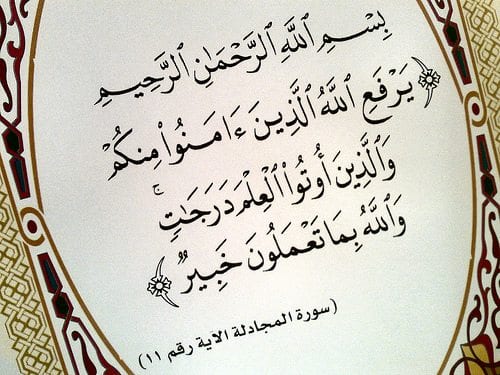 بِسْمِ ٱللَّهِ ٱلرَّحْمَٰنِ ٱلرَّحِيمِ
﴿يَرْفَعِ ٱللَّهُ ٱلَّذِينَ ءَامَنُوا۟ مِنكُمْ
وَٱلَّذِينَ أُوتُوا۟ ٱلْعِلْمَ دَرَجَٰتٍۚ
وَٱللَّهُ بِمَا تَعْمَلُونَ خَبِيرٌ﴾
(سورة المجادلة الآية رقم ١١)